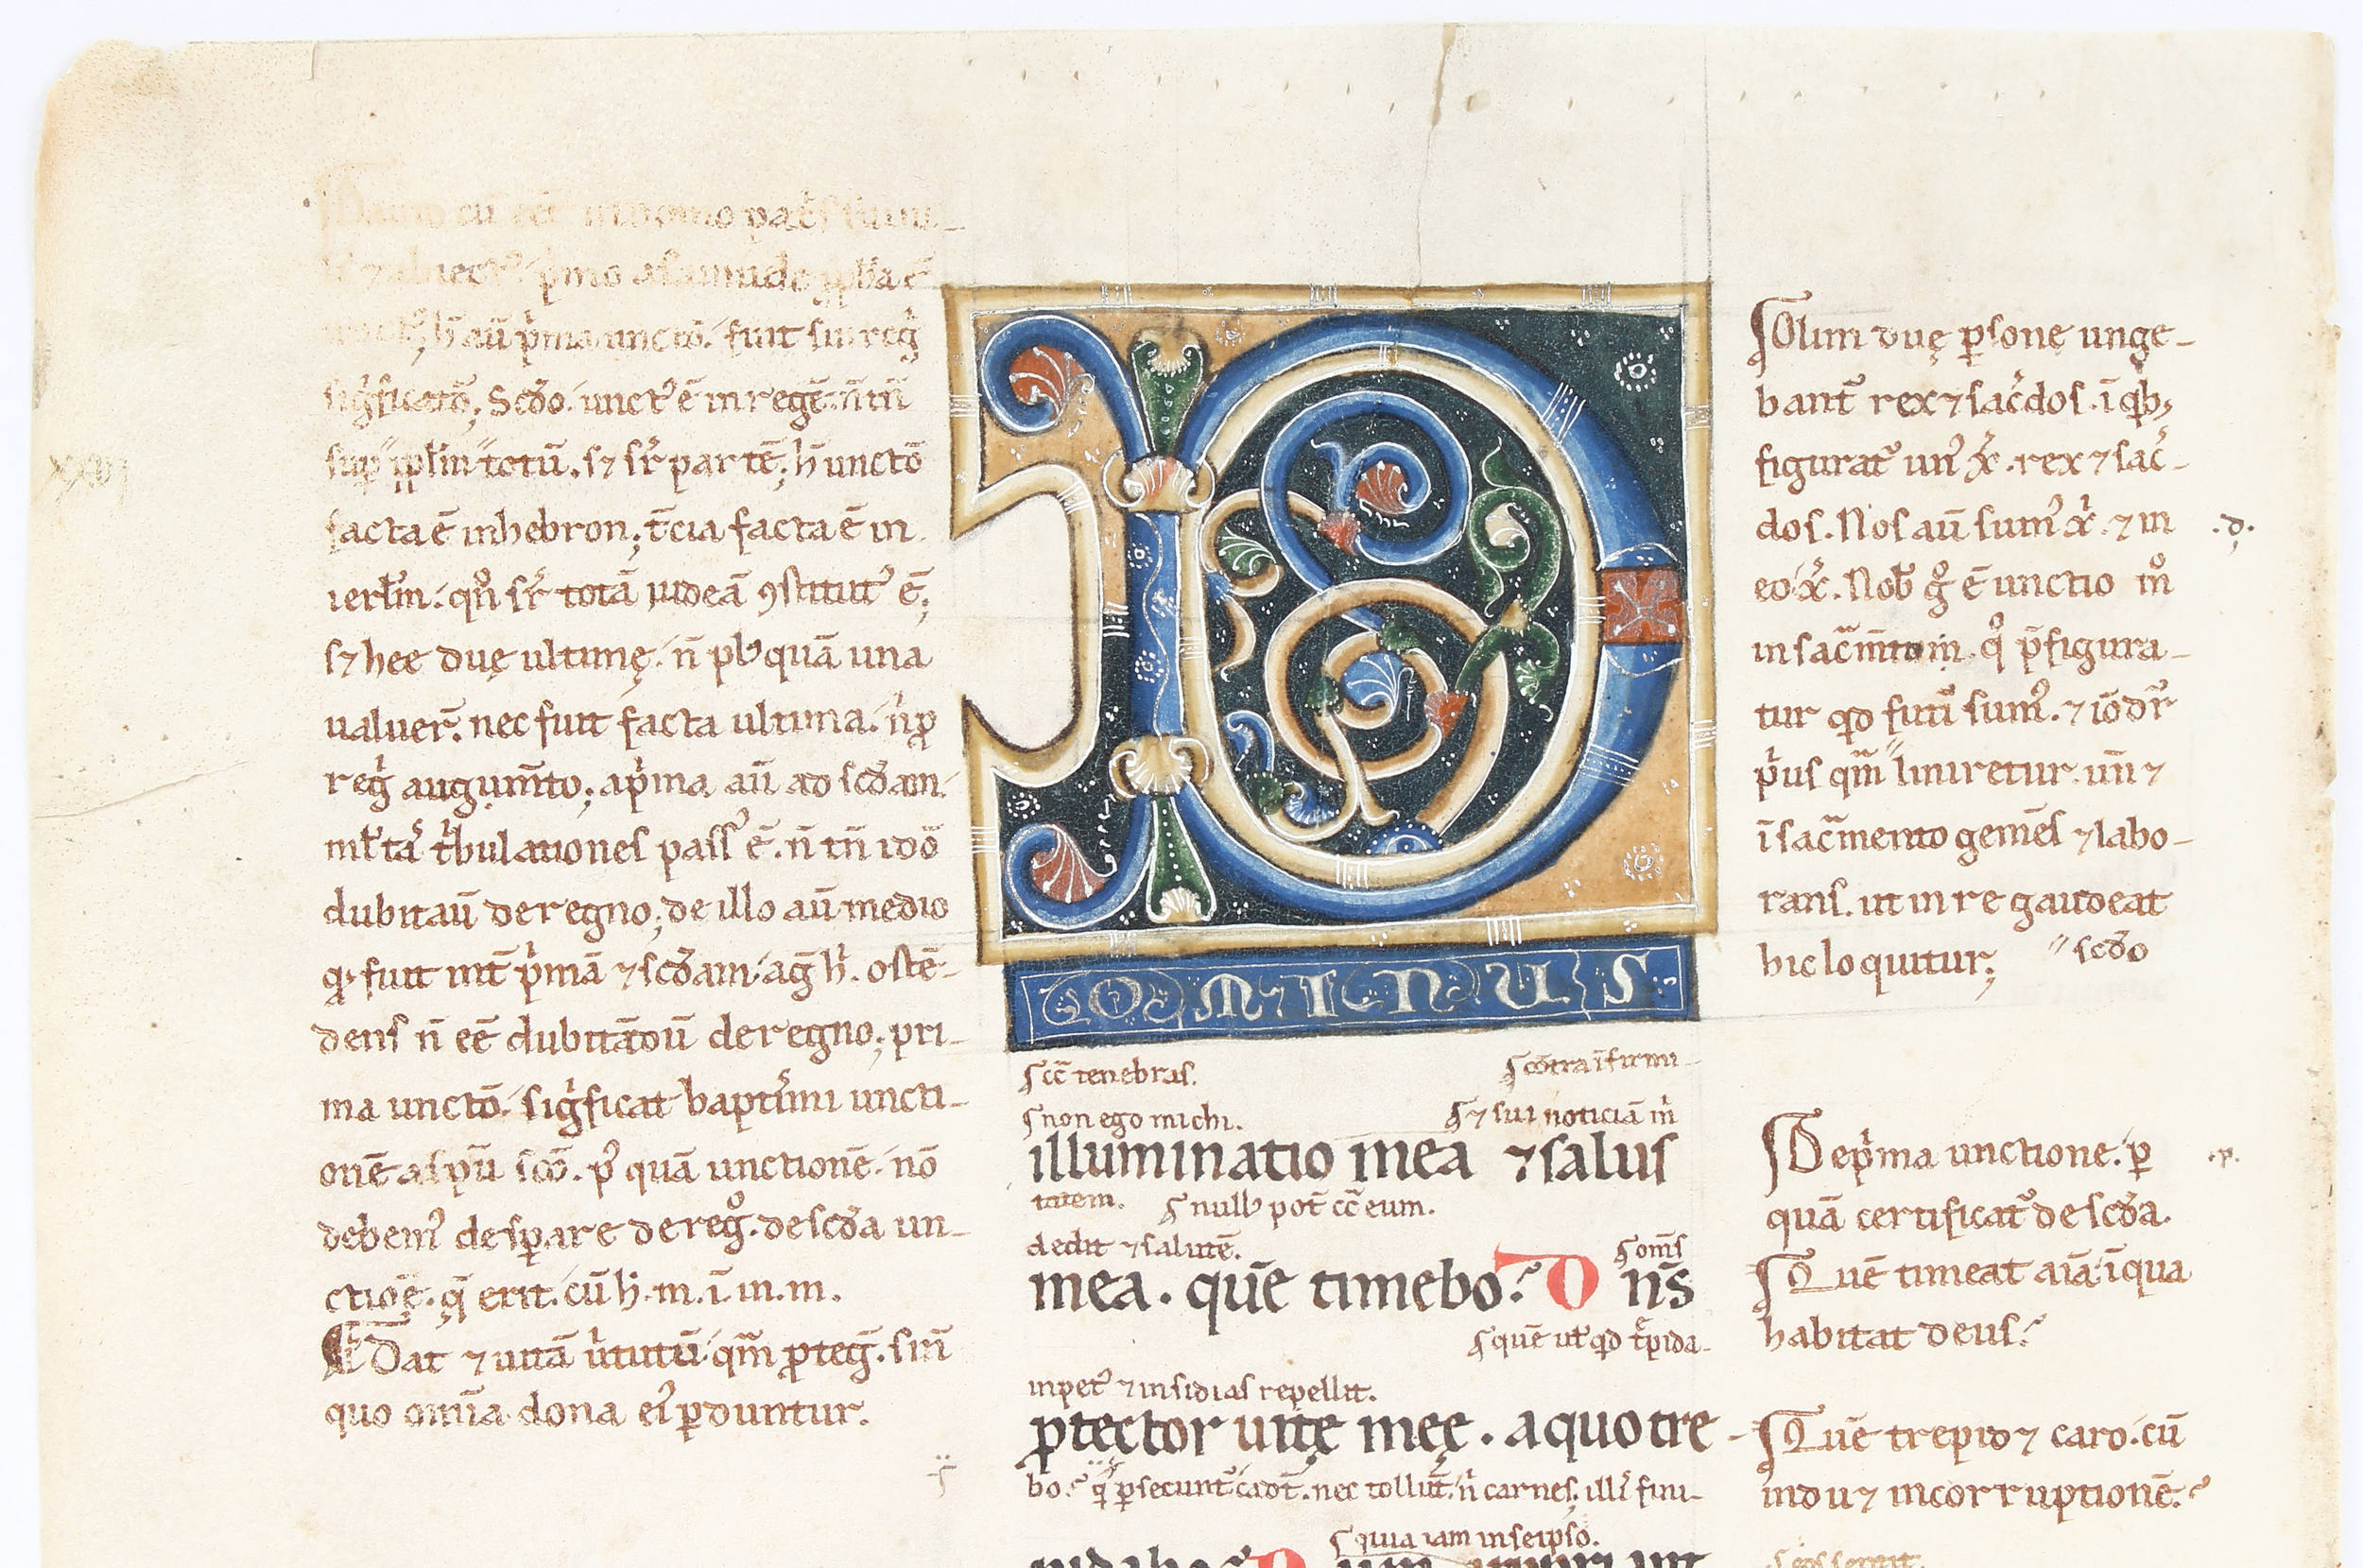 pat᷒s
p̾mo
h̄ aū p̾ma uncꞇō. fuit sui reḡ
sig̾ficatō; Scd̄o. unctꝰ ē in regē. n̄ tn̄
sup totū. sꝫ sr̄ partē; h̄ unctō
facta ē in hebron; t̄cia facta ē in
ierłm. qn̄ sr̄ totā iudeā ꝯstitutꝰ ē;
sꝫ hee duę ultimę. n̄ plꝰ quā una
ualuer̄. nec fuit facta ultima. n̾ ꝓ
reg̾ augum̄to; a p̾ma aū ad scd̄am.
mĺta᷒ t̾bulationes passꝰ ē. n̄ tn̄ idō
dubitaū de regno; de illo aū medio
qͥ fuit int̄ p̾mā ⁊ scd̄am. ag̾ h̾. ostē-
dens n̄ eē dubitādū de regno; pri-
ma unctō. sig̾ficat baptis̾mi uncti-
onē a sp̄u sc̄o. pꝰ quā unctionē. nō
debemꝰ desꝑare de regͦ. de scd̄a un-
ctiōe. q̄ erit. cū h̾. m. ī. in. m.
Dat ⁊ uitā u̾tutū. qm̄ ꝓteḡ. sin̄
quo om̄ia dona eiꝰ ꝑduntur.
DOMINUS
cc̄ tenebras. cōtra īfirmi-
non ego michi. ⁊ sui noticiā m̾
illuminatio mea ⁊ salus
tatem. nullꝰ pot̄ cc̄ eum.
dedit ⁊ salutē. om̄s
mea. quē timebo? Dn̄s
quē ut qd t᷒pida-
inpetꝰ ⁊ insidias repellit.
ꝓtector uitę meę. a quo tre-
bo. q̾ ꝑsecunt᷑ cadt̄. nec tollūt. n̾ carnes; illi᷒ fini-
quia iam in seipso.
Olim duę ꝑsonę unge-
bant᷑ rex ⁊ sac᷒dos. ī qͥbꝫ
figurat᷑ unꝰ x̄. rex ⁊ sac᷒-
dos. Nos aū sumꝰ x̄. ⁊ in .d.
eo x̄. Nob̄ gͦ ē unctio mͦ
in sac̄m̄to qͦ p̄figura-
tur qd futi᷒ sumꝰ. ⁊ iō dr̄
p̾us qm̄ liniretur. un̄ ⁊
ī sac̄mento gemēs ⁊ labo-
rans. ut in re gaudeat
hic loquitur; scd̄o
De p̾ma unctione. ꝑ .p.
quā certificat᷑ de scd̄a.
Quē timeat aīa. ī qua
habitat deus?
Quē trepid⁊ caro. cū
indu⁊ incorruptionē?